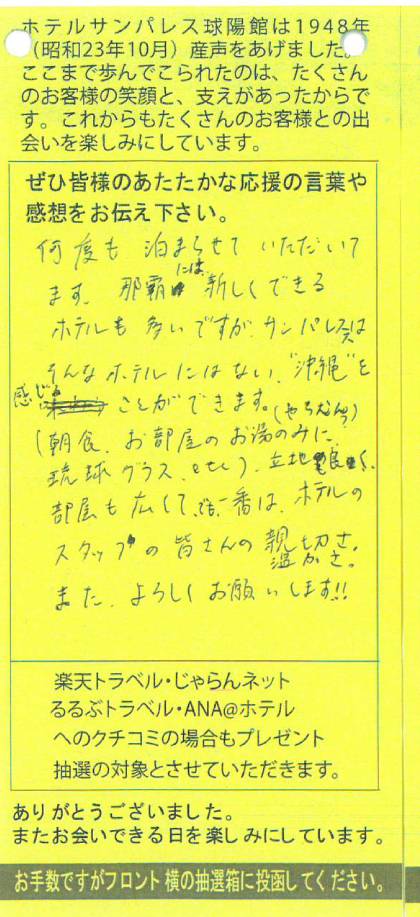 ホテルサンパレス球陽館は1948年
（昭和23年10月）産声をあげました。
ここまで歩んでこられたのは、たくさん
のお客様の笑顔と、支えがあったからで
す。これからもたくさんのお客様との出
会いを楽しみにしています。
ぜひ皆様のあたたかな応援の言葉や
感想をお伝え下さい。
何度も泊まらせていただいて
ます。那覇には新しくできる
ホテルも多いですが、サンパレスは
そんなホテルにはない、"沖縄"を
感じることができます。(やちむん?)
(朝食、お部屋のお湯のみに、
琉球グラス、etc)、立地も良く、
部屋も広くて、でも一番は、ホテルの
スタッフの皆さんの親切さ。
温かさ。
また、よろしくお願いします!!
楽天トラベル・じゃらんネット
るるぶトラベル・ANA@ホテル
へのクチコミの場合もプレゼント
抽選の対象とさせていただきます。
ありがとうございました。
またお会いできる日を楽しみにしています。
お手数ですがフロント横の抽選箱に投函してください。